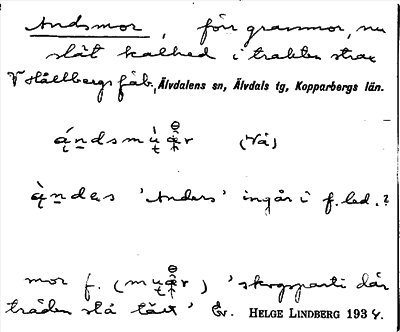 Andsmor, förr granmor, nu
slät kalhed i trakten strax
V Hållbergs fäb., Älvdalens sn, Älvdals tg, Kopparbergs län.
(Vå)
'Anders' ingår i f. led.?
mor f. ( ) 'skogsparti där
träden stå tätt' Åv. HELGE LINDBERG 1934.